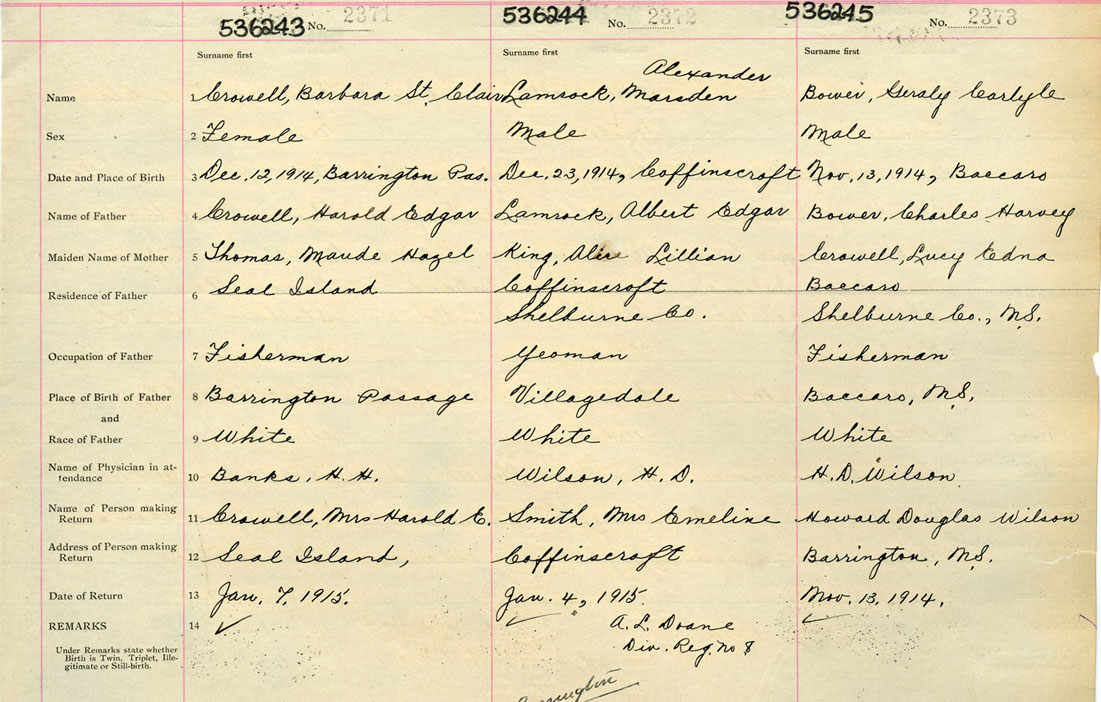 536243 No. 2371 536244 No. 2372 536245 No. 2373
Surname first Surname first Surname first
Alexander
Name 1 Crowell, Barbara St. Clair Lamrock, Marsden Bower, Geraly Carlyle
Sex 2 Female Male Male
Date and Place of Birth 3 Dec. 12, 1914, Barrington Pas. Dec. 23, 1914, Coffinscroft Nov. 13, 1914, Baccaro
Name of Father 4 Crowell, Harold Edgar Lamrock, Albert Edgar Bower, Charles Harvey
Maiden Name of Mother 5 Thomas, Maude Hazel King, Alice Lillian Crowell, Lucy Edna
Residence of Father 6 Seal Island Coffinscroft Baccaro
Shelburne Co. Shelburne Co., N.S.
Occupation of Father 7 Fisherman Yeoman Fisherman
Place of Birth of Father 8 Barrington Passage Villagedale Baccaro, N.S.
and
Race of Father 9 White White White
Name of Physician in at-
tendance 10 Banks, H. H. Wilson, H. D. H. D. Wilson
Name of Person making
Return 11 Crowell, Mrs Harold E. Smith, Mrs Emeline Howard Douglas Wilson
Address of Person making
Return 12 Seal Island, Coffinscroft Barrington, N.S.
Date of Return 13 Jan. 7, 1915. Jan. 4, 1915. Nov. 13, 1914.
REMARKS 14 ✓ A. L. Doane
Div. Reg. No 8
Under Remarks state whether
Birth is Twin, Triplet, Ille-
gitimate or Still-birth.
Barrington